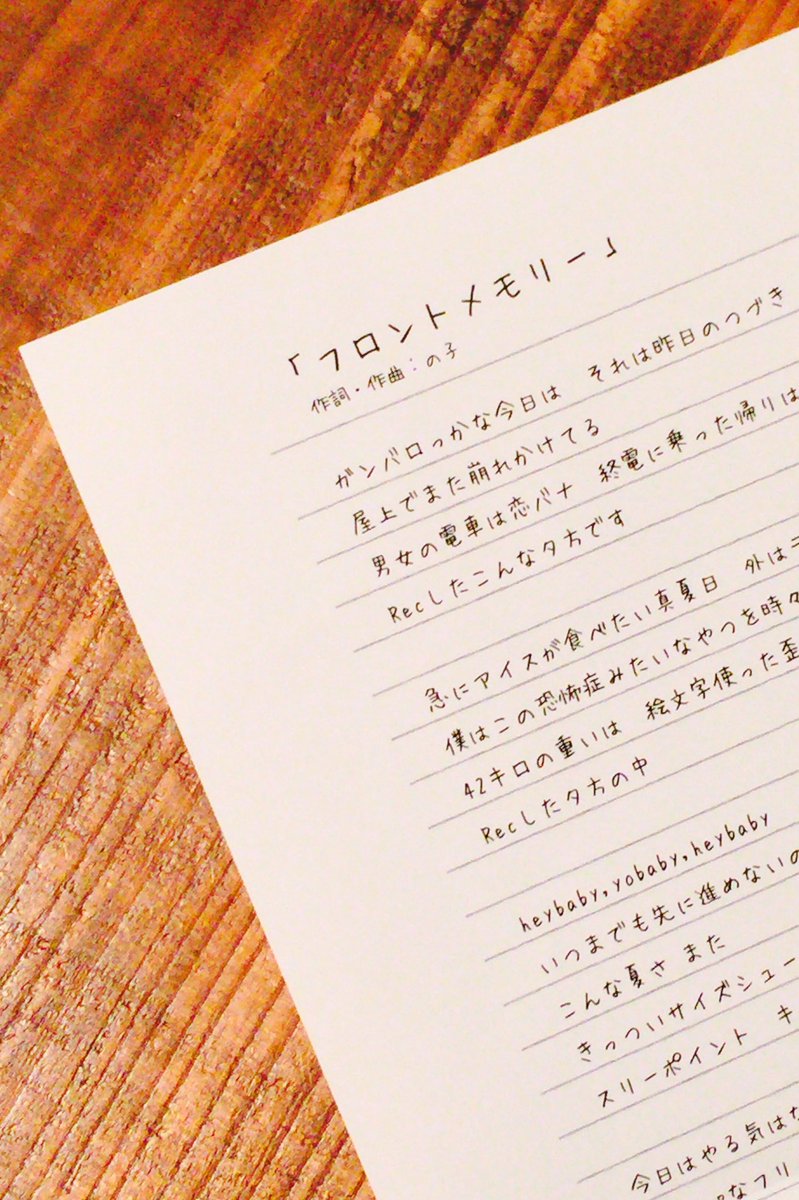 「フロントメモリー」
作詞・作曲：の子
ガンバロっかな今日は　それは昨日のつづき
屋上でまた崩れかけてる
男女の電車は恋バナ　終電に乗った帰りは
Recしたこんな夕方です
急にアイスが食べたい真夏日　外は
僕はこの恐怖症みたいなやつを時々
42キロの重いは　絵文字使った歪
Recした夕方の中
heybaby,yobaby,heybaby
いつまでも先に進めないの
こんな夏さ また
きっついサイズシュー
スリーポイント　キ
今日はやる気は
なフリ